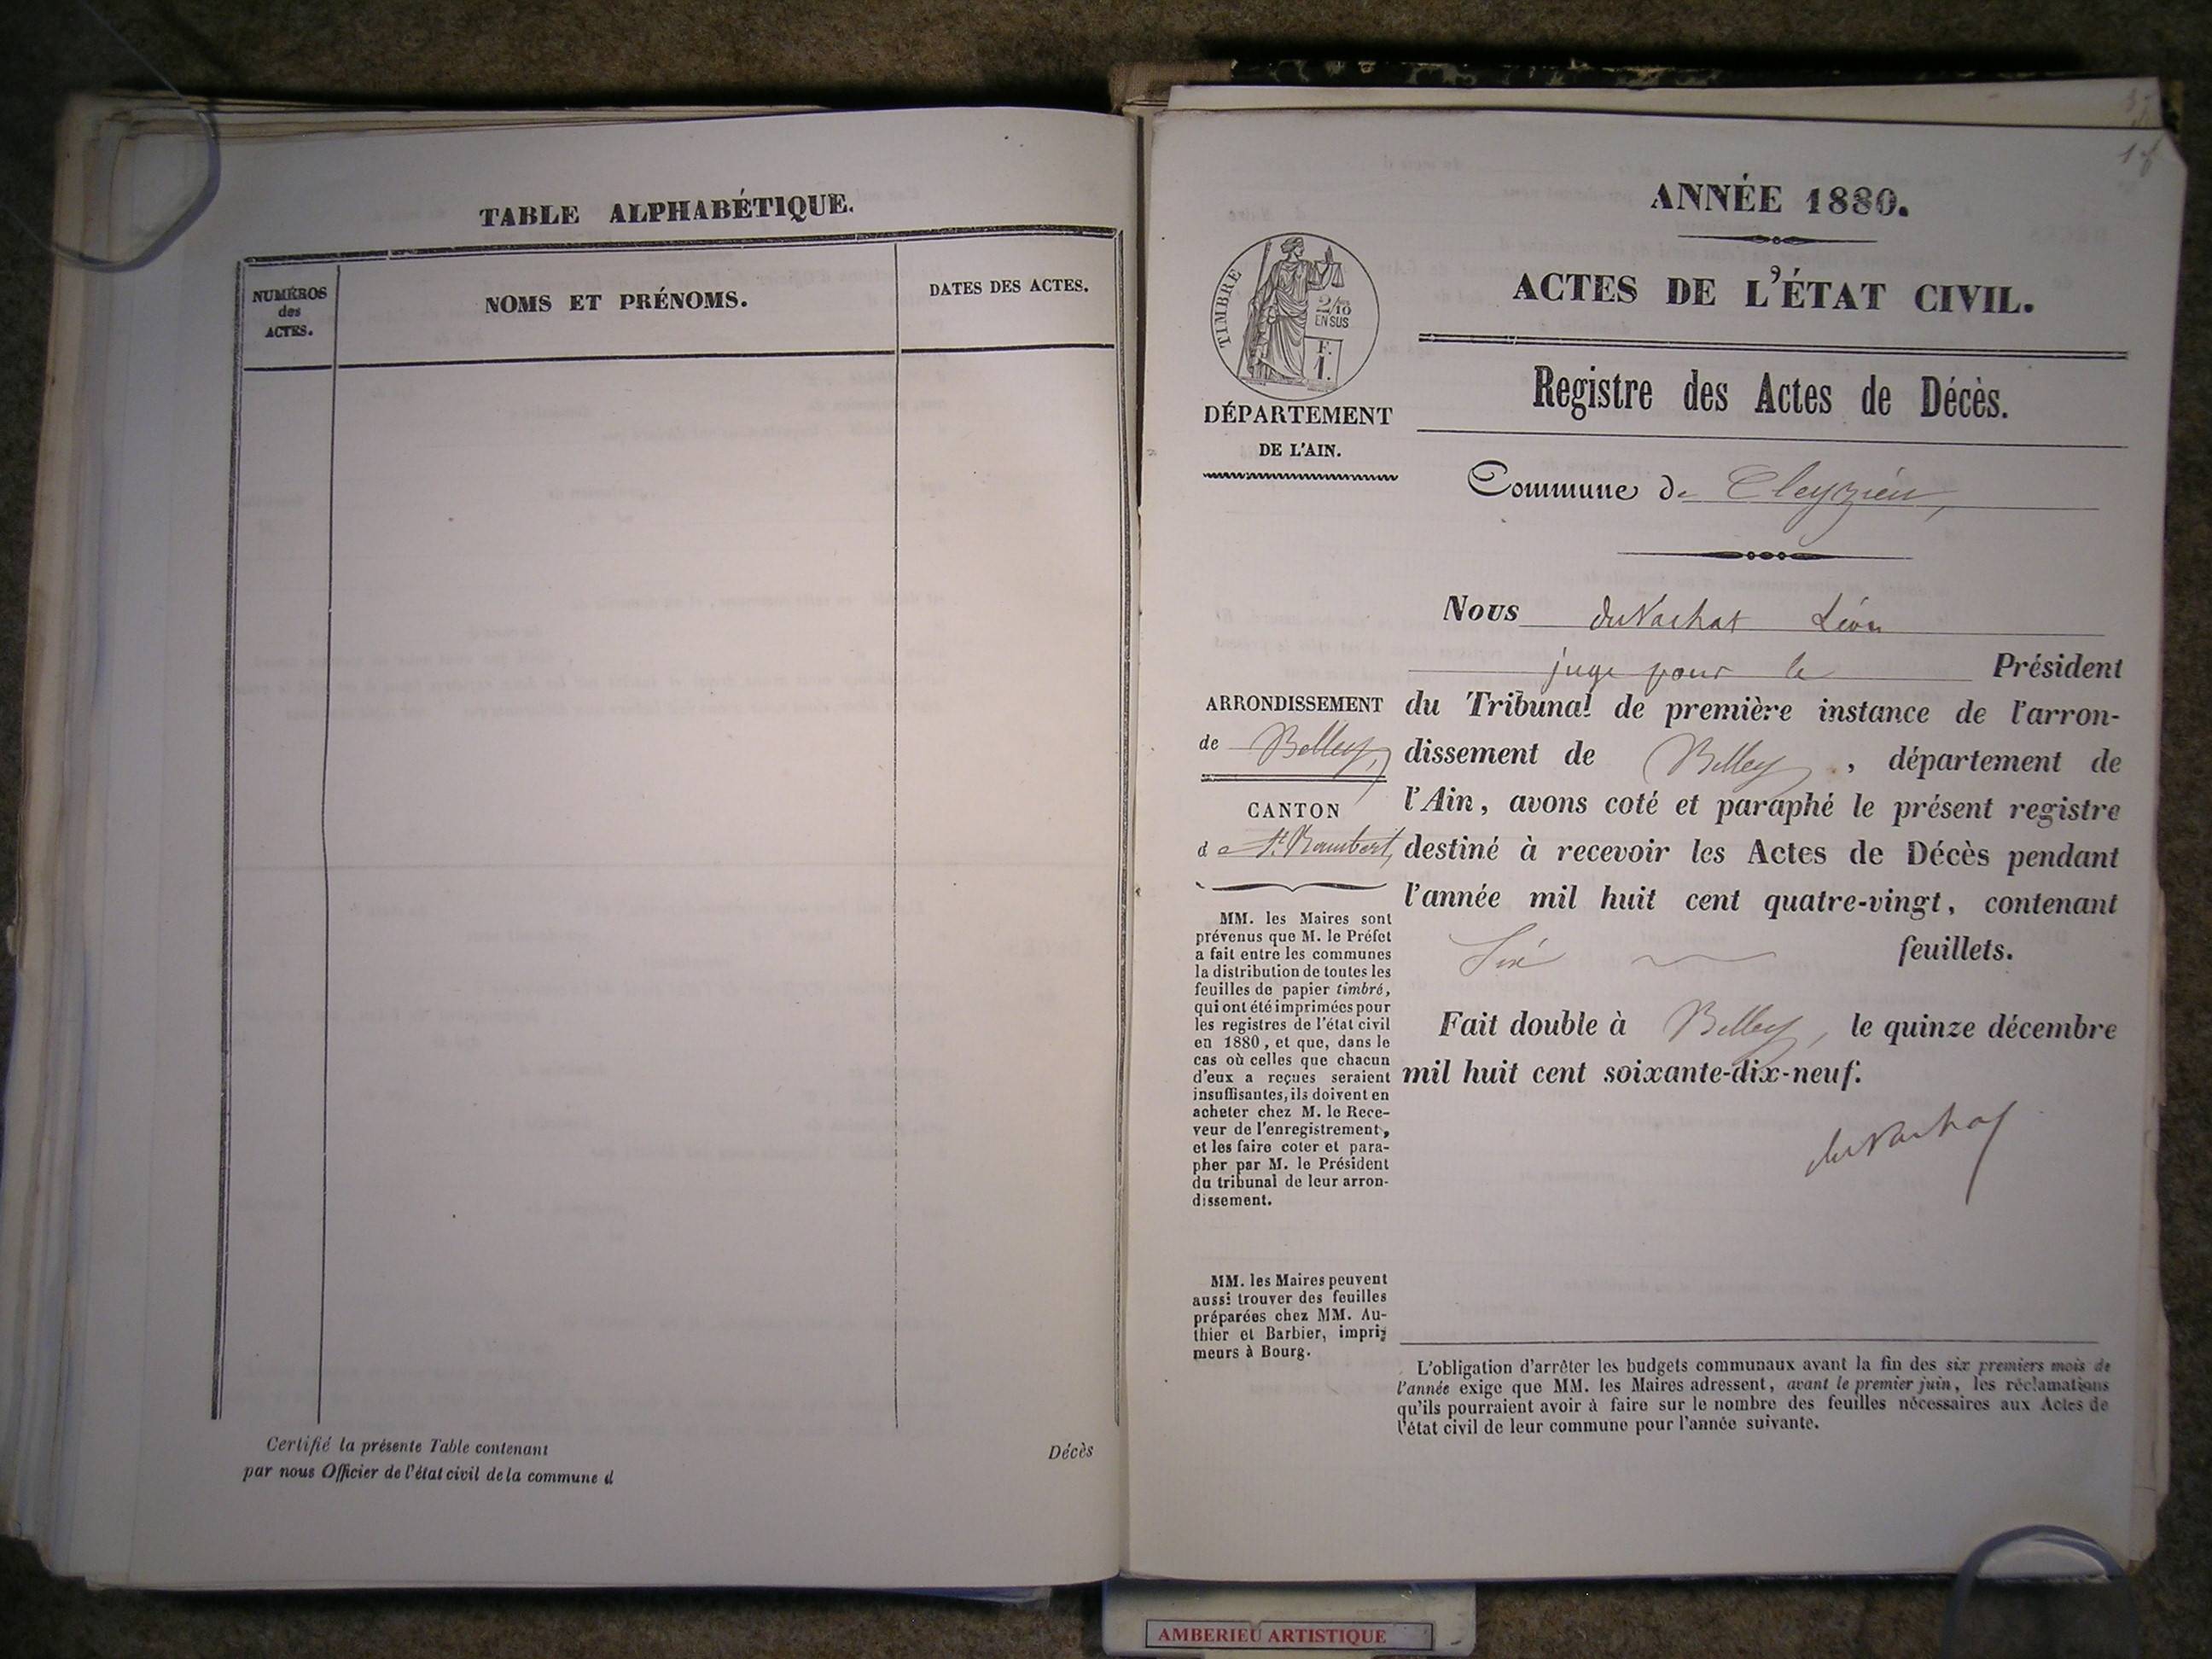 TABLE ALPHABÉTIQUE.
NUMÉROS
des
ACTES.
NOMS ET PRÉNOMS.
DATES DES ACTES.
Certifié la présente Table contenant
Décès
par nous Officier de l'état civil de la commune d
ANNÉE 1880.
ACTES DE L'ÉTAT CIVIL.
TIMBRE
2/10
EN SUS
F.
1.
DÉPARTEMENT
DE L'AIN.
Registre des Actes de Décès.
Commune de Cleyzieu,
Nous duVachat Léon
juge pour le Président
du Tribunal de première instance de l'arron-
dissement de Belley, département de
l'Ain, avons coté et paraphé le présent registre
destiné à recevoir les Actes de Décès pendant
l'année mil huit cent quatre-vingt, contenant
Six feuillets.
Fait double à Belley, le quinze décembre
mil huit cent soixante-dix-neuf.
duVachat
ARRONDISSEMENT
de Belley,
CANTON
de St. Rambert,
MM. les Maires sont
prévenus que M. le Préfet
a fait entre les communes
la distribution de toutes les
feuilles de papier timbré,
qui ont été imprimées pour
les registres de l'état civil
en 1880, et que, dans le
cas où celles que chacun
d'eux a reçues seraient
insuffisantes, ils doivent en
acheter chez M. le Rece-
veur de l'enregistrement,
et les faire coter et para-
pher par M. le Président
du tribunal de leur arron-
dissement.
MM. les Maires peuvent
aussi trouver des feuilles
préparées chez MM. Au-
thier et Barbier, impri-
meurs à Bourg.
L'obligation d'arrêter les budgets communaux avant la fin des six premiers mois de
l'année exige que MM. les Maires adressent, avant le premier juin, les réclamations
qu'ils pourraient avoir à faire sur le nombre des feuilles nécessaires aux Actes de
l'état civil de leur commune pour l'année suivante.
AMBERIEU ARTISTIQUE